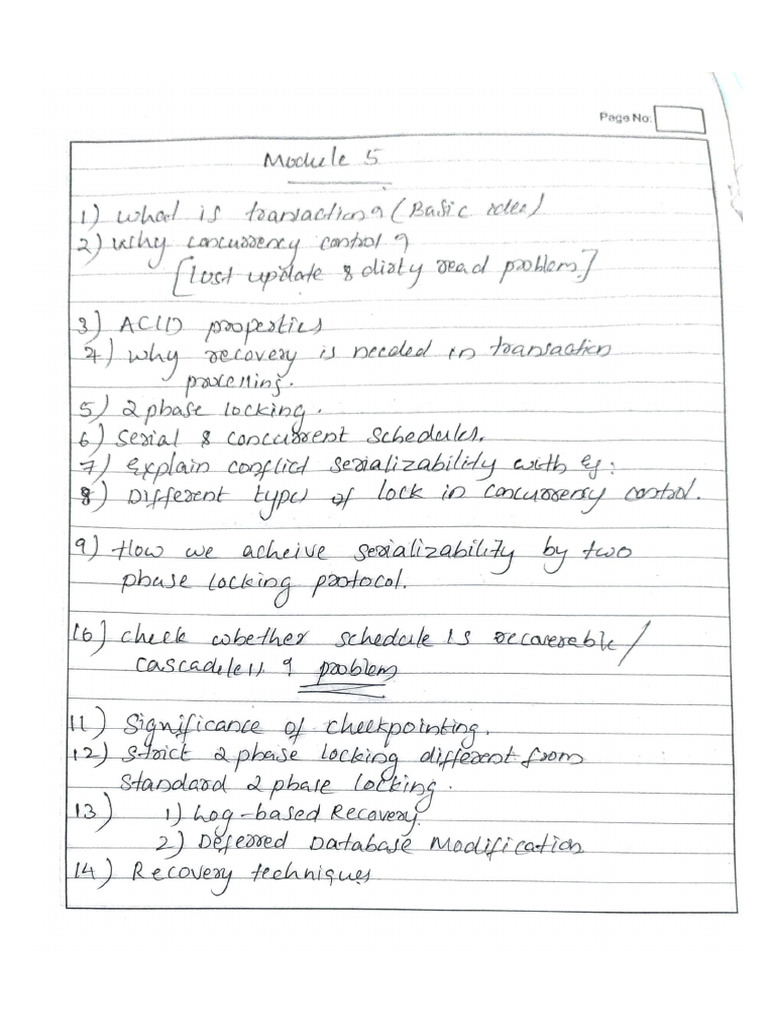 Page No:
Module 5
1) What is transaction? (Basic idea)
2) Why concurrency control ?
[Lost update & dirty read problem.]
3) ACID properties
4) Why recovery is needed in transaction
processing.
5) 2 phase locking.
6) Serial & concurrent schedules.
7) Explain conflict serializability with eg:
8) Different types of lock in concurrency control.
9) How we acheive serializability by two
phase locking protocol.
10) Check whether schedule is recoverable /
cascadeless ? problem
11) Significance of checkpointing.
12) Strict 2 phase locking different from
standard 2 phase locking.
13) 1) Log-based Recovery.
2) Deferred Database Modification
14) Recovery techniques